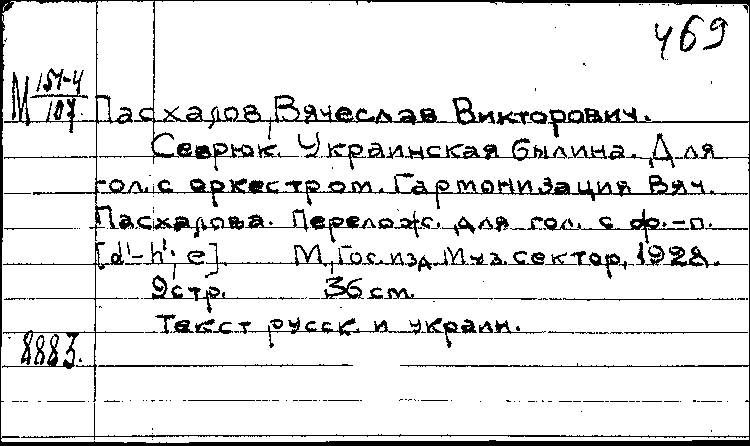 469
М 151-4/107 Пасхалов, Вячеслав Викторович.
Севрюк. Украинская былина. Для
гол. с оркестром. Гармонизация Вяч.
Пасхалова. Перелож. для гол. с ф.-п.
[d¹-h¹; e]. М, Гос. изд. Муз. сектор, 1928.
9 стр. 36 см.
Текст русск. и украин.
8883.